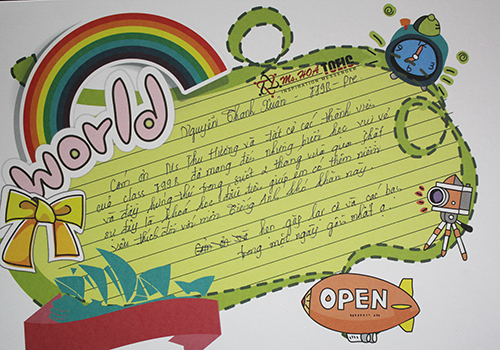 World
Ms. HOA TOEIC
INSPIRATION MESSENGER
Nguyễn Thanh Xuân - 779B - Pre
Cảm ơn Ms Thu Hương và tất cả các thành viên
của class 779B đã mang đến những buổi học vui vẻ
và đầy hứng thú trong suốt 2 tháng vừa qua. Thật
sự đây là khóa học đầu tiên giúp em có thêm niềm
yêu thích đối với môn tiếng Anh khó khăn này
hẹn gặp lại cô và các bạn
trong một ngày gần nhất ạ.
OPEN